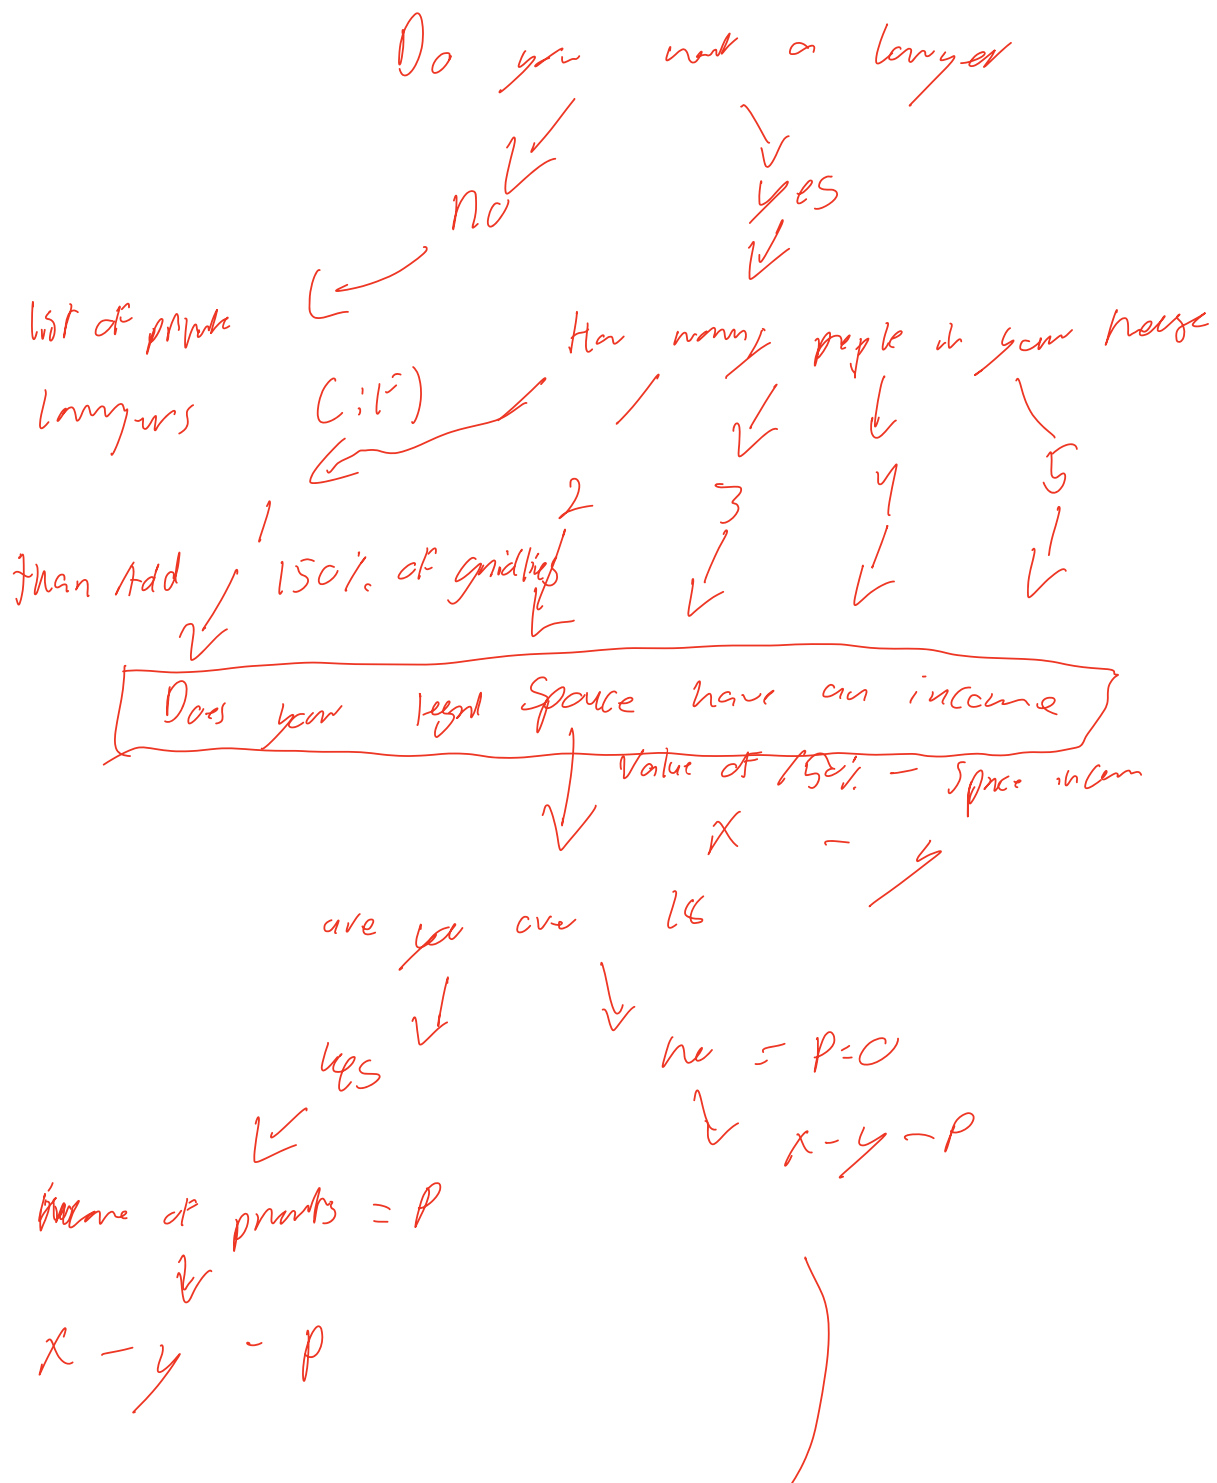 Do you want a lawyer
no
yes
list of private
lawyers
(if)
How many people in your house
1
2
3
4
5
than Add 150% of
Does your legal Spouce have an income
Value of 150% - Spouce incom
x - y
are you over 18
yes
no = P=0
x - y - P
income of parents = P
x - y - P